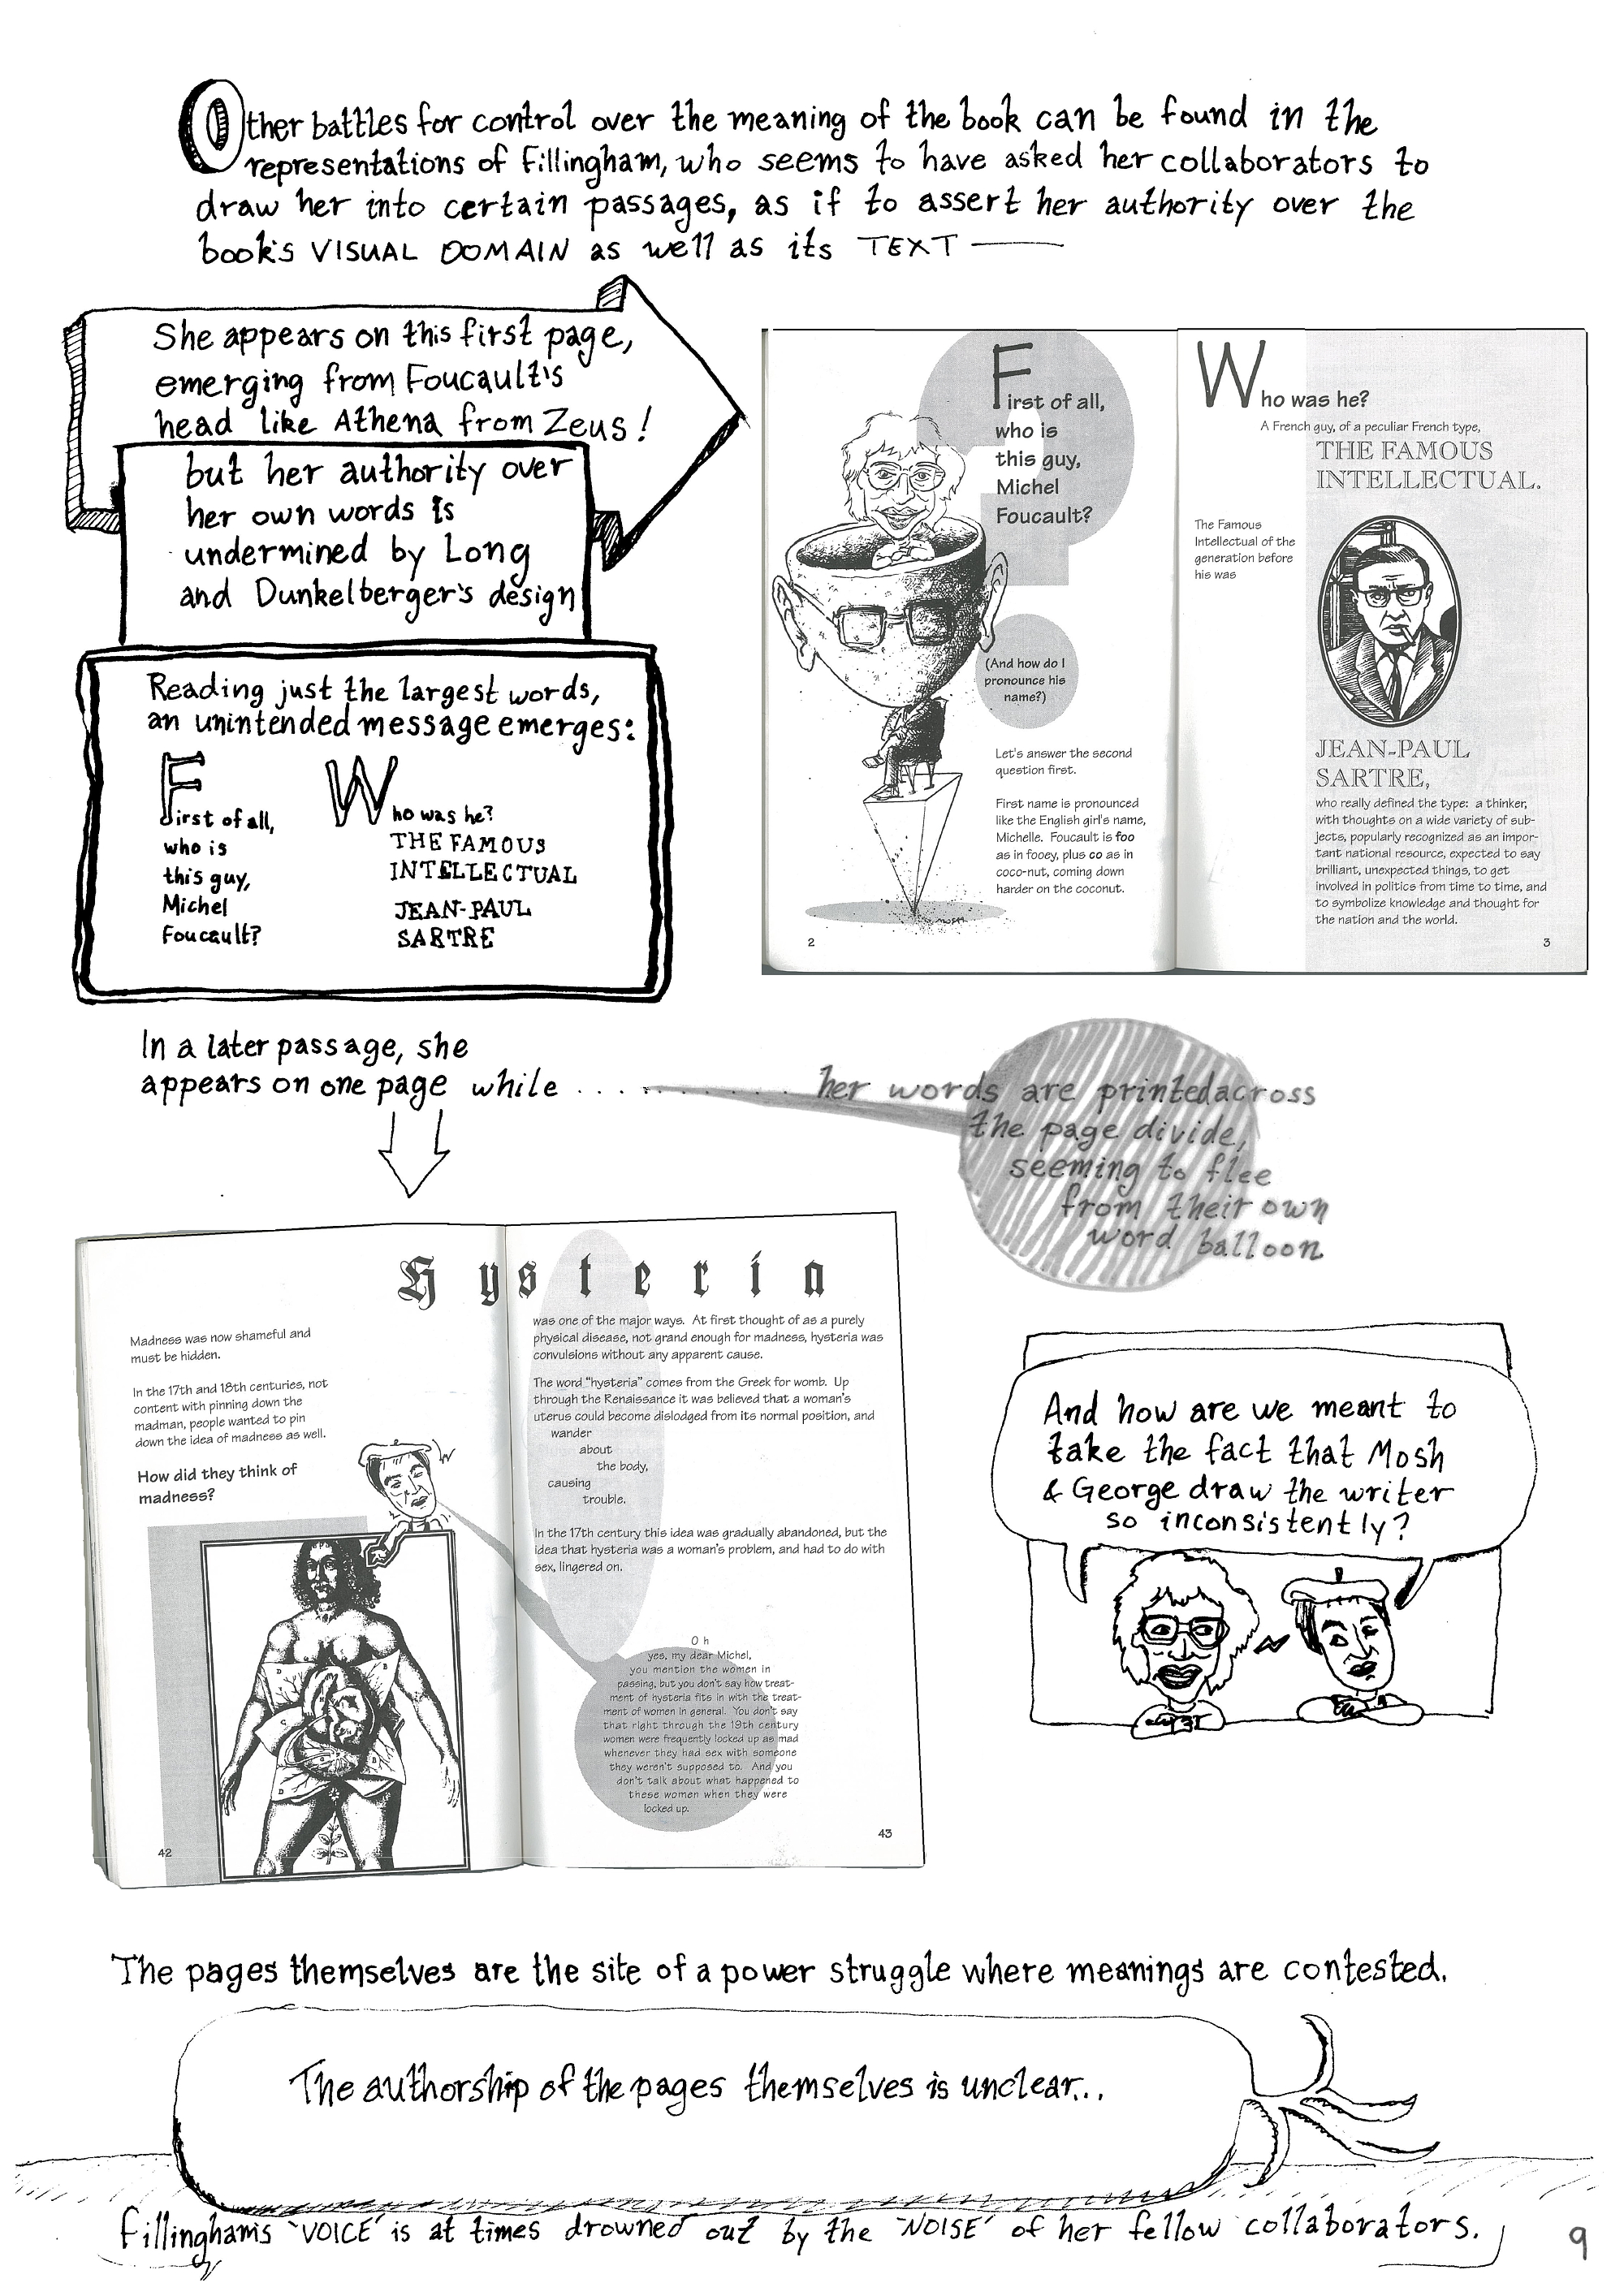 Other battles for control over the meaning of the book can be found in the
representations of Fillingham, who seems to have asked her collaborators to
draw her into certain passages, as if to assert her authority over the
book's VISUAL DOMAIN as well as its TEXT —
She appears on this first page,
emerging from Foucault's
head like Athena from Zeus!
but her authority over
her own words is
undermined by Long
and Dunkelberger's design
Reading just the largest words,
an unintended message emerges:
First of all,
who is
this guy,
Michel
Foucault?
Who was he?
THE FAMOUS
INTELLECTUAL
JEAN-PAUL
SARTRE
First of all,
who is
this guy,
Michel
Foucault?
(And how do I
pronounce his
name?)
Let's answer the second
question first.
First name is pronounced
like the English girl's name,
Michelle. Foucault is foo
as in fooey, plus co as in
coco-nut, coming down
harder on the coconut.
2
Who was he?
A French guy, of a peculiar French type,
THE FAMOUS
INTELLECTUAL.
The Famous
Intellectual of the
generation before
his was
JEAN-PAUL
SARTRE,
who really defined the type: a thinker,
with thoughts on a wide variety of sub-
jects, popularly recognized as an impor-
tant national resource, expected to say
brilliant, unexpected things, to get
involved in politics from time to time, and
to symbolize knowledge and thought for
the nation and the world.
3
In a later passage, she
appears on one page while ............
her words are printedacross
the page divide,
seeming to flee
from their own
word balloon
Hysteria
Madness was now shameful and
must be hidden.
In the 17th and 18th centuries, not
content with pinning down the
madman, people wanted to pin
down the idea of madness as well.
How did they think of
madness?
42
was one of the major ways. At first thought of as a purely
physical disease, not grand enough for madness, hysteria was
convulsions without any apparent cause.
The word "hysteria" comes from the Greek for womb. Up
through the Renaissance it was believed that a woman's
uterus could become dislodged from its normal position, and
wander
about
the body,
causing
trouble.
In the 17th century this idea was gradually abandoned, but the
idea that hysteria was a woman's problem, and had to do with
sex, lingered on.
Oh
yes, my dear Michel,
you mention the women in
passing, but you don't say how treat-
ment of hysteria fits in with the treat-
ment of women in general. You don't say
that right through the 19th century
women were frequently locked up as mad
whenever they had sex with someone
they weren't supposed to. And you
don't talk about what happened to
these women when they were
locked up.
43
And how are we meant to
take the fact that Mosh
& George draw the writer
so inconsistently?
The pages themselves are the site of a power struggle where meanings are contested.
The authorship of the pages themselves is unclear...
Fillingham's 'VOICE' is at times drowned out by the 'NOISE' of her fellow collaborators.
9